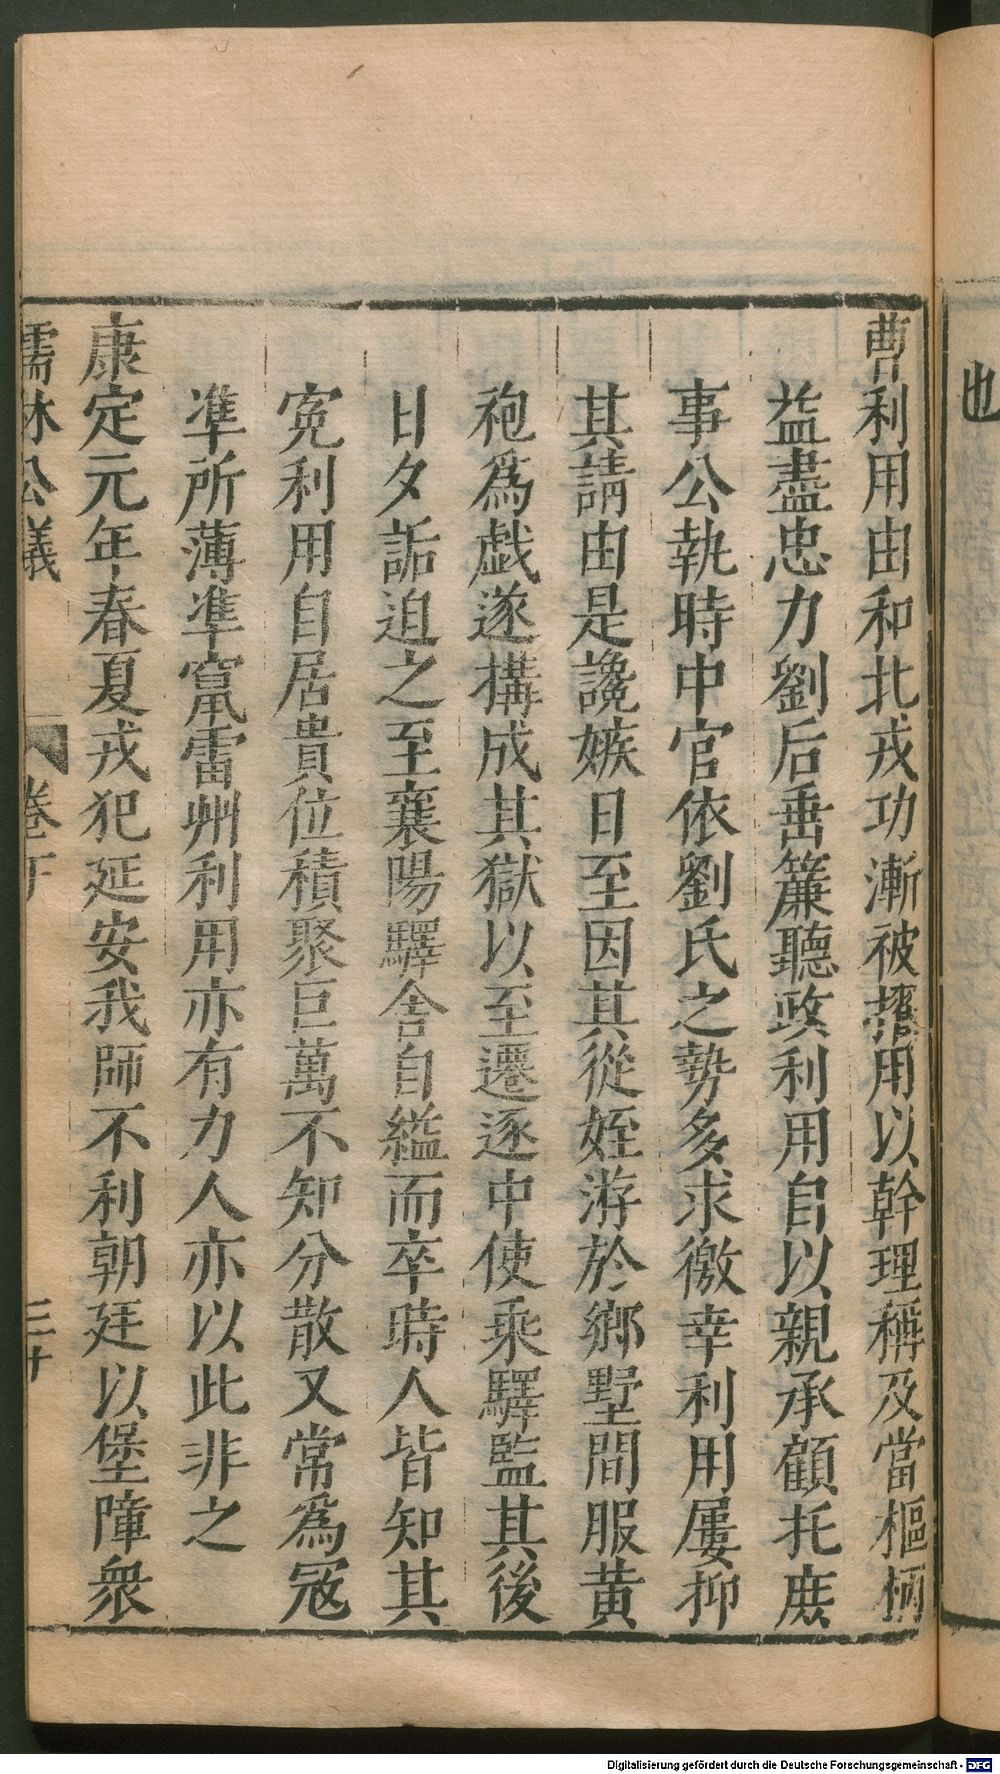 也
曹利用由和北戎功漸被擢用以幹理稱及當樞柄
益盡忠力劉后垂簾聽政利用自以親承顧托庶
事公執時中官依劉氏之勢多求徼幸利用屢抑
其請由是讒嫉日至因其從姪游於鄉墅間服黄
袍爲戯遂搆成其獄以至遷逐中使乘驛監其後
日夕詬迫之至襄陽驛舍自縊而卒時人皆知其
寃利用自居貴位積聚巨萬不知分散又常爲宼
凖所薄凖竄雷州利用亦有力人亦以此非之
康定元年春夏戎犯延安我師不利朝廷以堡障衆
儒林公議 卷下 三十
Digitalisierung gefördert durch die Deutsche Forschungsgemeinschaft - DFG